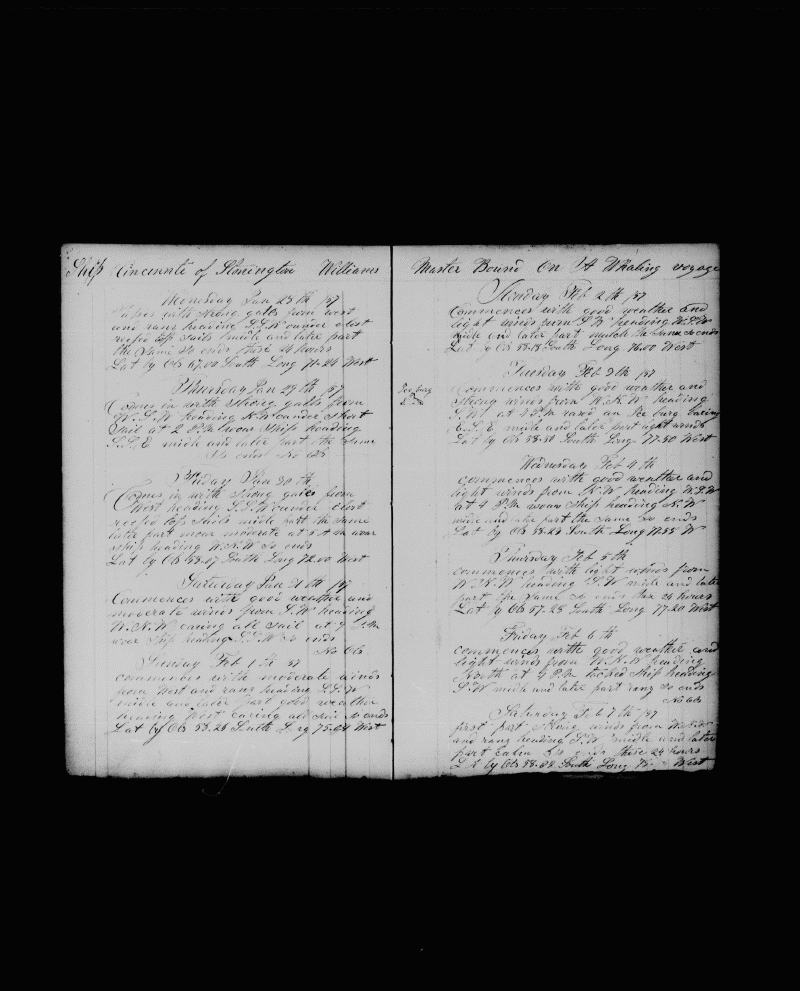 Ship Cincennte of Stonington Williams Master Bound On A Whaling voyage
Wensday Jan 28th /57
with strong gales from west
and rany heading S.S.W under clost
reefed top Sails midle and later part
the Same So ends these 24 hours
Lat by Obs 57.00 South Long 71-24 West
Thursday Jan 29th /57
Comes in with strong gales from
W.S.W heading N.W under Short
Sail at 2 P.M wore Ship heading
S.S.E midle and later part the Same
So ends No Obs
Friday Jan 30th
Comes in with strong gales from
West heading S.S.W under clost
reefed top Sails midle part the Same
later part more moderate at 5 A M wore
ship heading W.N.W So ends
Lat by Obs 58.07 South Long 72.00 West
Saturday Jan 31th /57
Commences with good weather and
moderate winds from S.W heading
W.N.W caring all Sail at 7 P.M
wore Ship heading S.S.W So ends
No Obs
Sunday Feb 1 th 57
commences with moderate winds
from West and rany heading S.S.W
midle and later part good weather
heading West caring all Sail So ends
Lat by Obs 58.28 South Long 75.04 West
Monday Feb 2th /57
Commences with good weather and
light winds from S.W heading W.N.W
midle and later part mutch the Same So ends
Lat by Obs 58-18 South Long 76.00 West
Tuesday Feb 3th /57
Commences with good weather and
strong winds from W.N.W heading
S.W at 4 P.M rased an Ice burg baring
E.S.E midle and later part light winds
Lat by Obs 58-50 South Long 77-50 West
Ice burg
Wensday Feb 4th
commences with good weather and
light winds from N.W heading W.S.W
at 4 P.M wore Ship heading N.W
midle and later part the Same So ends
Lat by Obs 58-23 South Long 77.55 W
Thursday Feb 5th
commences with light winds from
W.N.W heading S.W midle and later
part the Same So ends these 24 hours
Lat by Obs 57-28 South Long 77-20 West
Friday Feb 6th
commences with good weather and
light winds from W.N.W heading
North at 4 P.M tacked Ship heading
S.W midle and later part rany So ends
No Obs
Saturday Feb 7th /57
first part strong winds from W.N.W
and rany heading S.W midle and later
part Calm So ends these 24 hours
Lat by Obs 58-32 South Long West